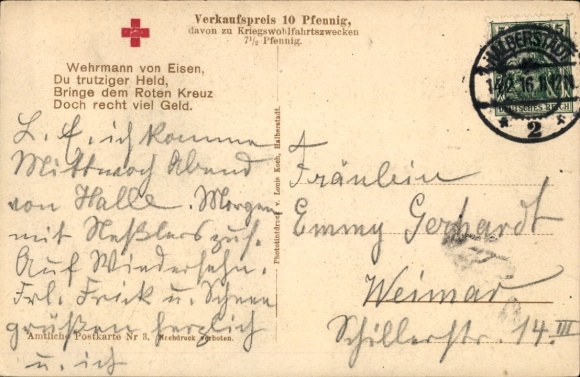 Verkaufspreis 10 Pfennig,
davon zu Kriegswohlfahrtszwecken
7½ Pfennig.
Wehrmann von Eisen,
Du trutziger Held,
Bringe dem Roten Kreuz
Doch recht viel Geld.
L. E. ich komme
Mittwoch Abend
von Halle. Morgen
mit Neßlers zus.
Auf Wiedersehn.
Frl. Frick u. Schnee
grüßen herzlich
u. ich
Amtliche Postkarte Nr 3. Nachdruck verboten.
Photokintdruck v. Louis Koch, Halberstadt.
HALBERSTADT
2
DEUTSCHES REICH
Fräulein
Emmy Gerhardt
Weimar
Schillerstr. 14 III